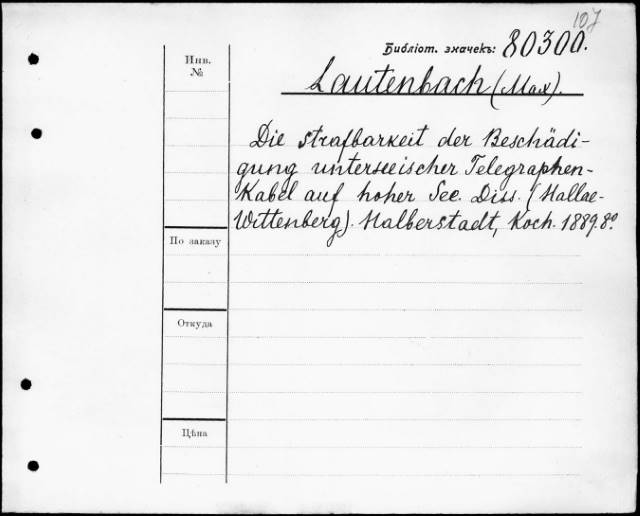 107
Библіот. значекъ: 80300.
Lautenbach (Max).
Инв.
№
Die Strafbarkeit der Beschädi-
gung unterseeischer Telegraphen-
Kabel auf hoher See. Diss. (Hallae-
Wittenberg). Halberstadt, Koch. 1889. 8º
По заказу
Откуда
Цѣна